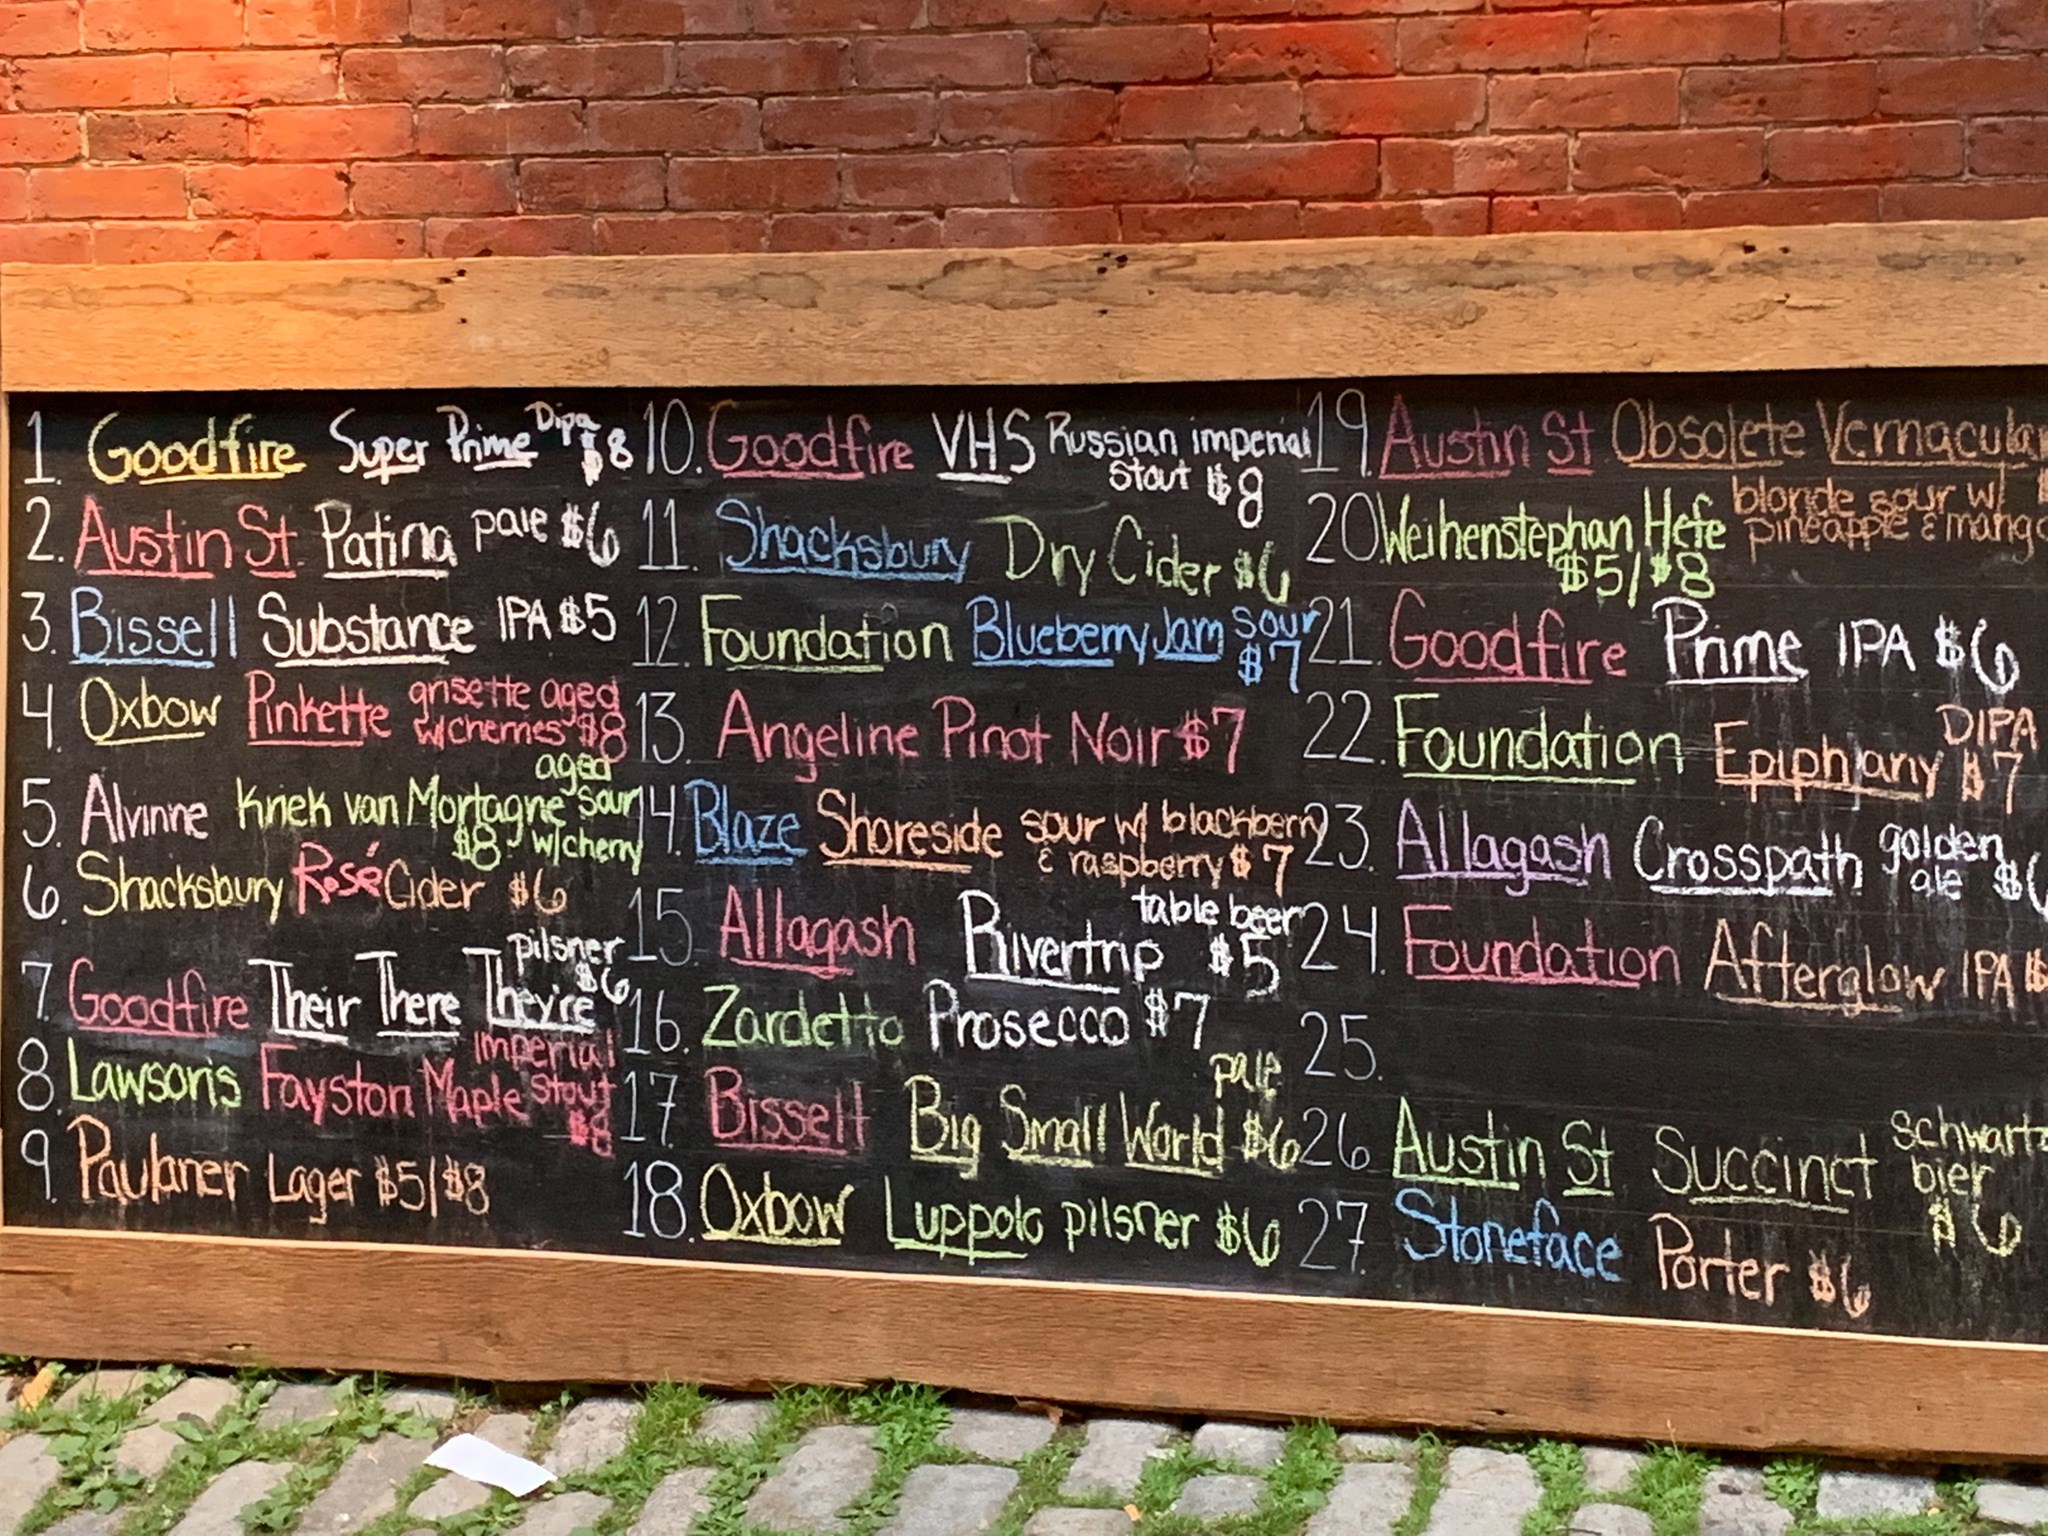 1. Goodfire Super Prime Dipa $8
2. Austin St. Patina pale $6
3. Bissell Substance IPA $5
4. Oxbow Pinkette grisette aged
w/cherries $8
5. Alvinne Kriek van Mortagne aged sour
$8 w/cherry
6. Shacksbury Rosé Cider $6
7. Goodfire Their There They're pilsner $6
8. Lawson's Fayston Maple imperial stout
$8
9. Paulaner Lager $5/$8
10. Goodfire VHS Russian imperial
stout $8
11. Shacksbury Dry Cider $6
12. Foundation Blueberry Jam sour
$7
13. Angeline Pinot Noir $7
14. Blaze Shoreside sour w/ blackberry
& raspberry $7
15. Allagash Rivertrip table beer
$5
16. Zardetto Prosecco $7
17. Bissell Big Small World pale $6
18. Oxbow Luppolo pilsner $6
19. Austin St Obsolete Vernacular
blonde sour w/ $
pineapple & mango
20 Weihenstephan Hefe
$5/$8
21. Goodfire Prime IPA $6
22. Foundation Epiphany DIPA
$7
23. Allagash Crosspath golden
ale $6
24. Foundation Afterglow IPA $
25.
26 Austin St Succinct schwartz
bier
$6
27. Stoneface Porter $6